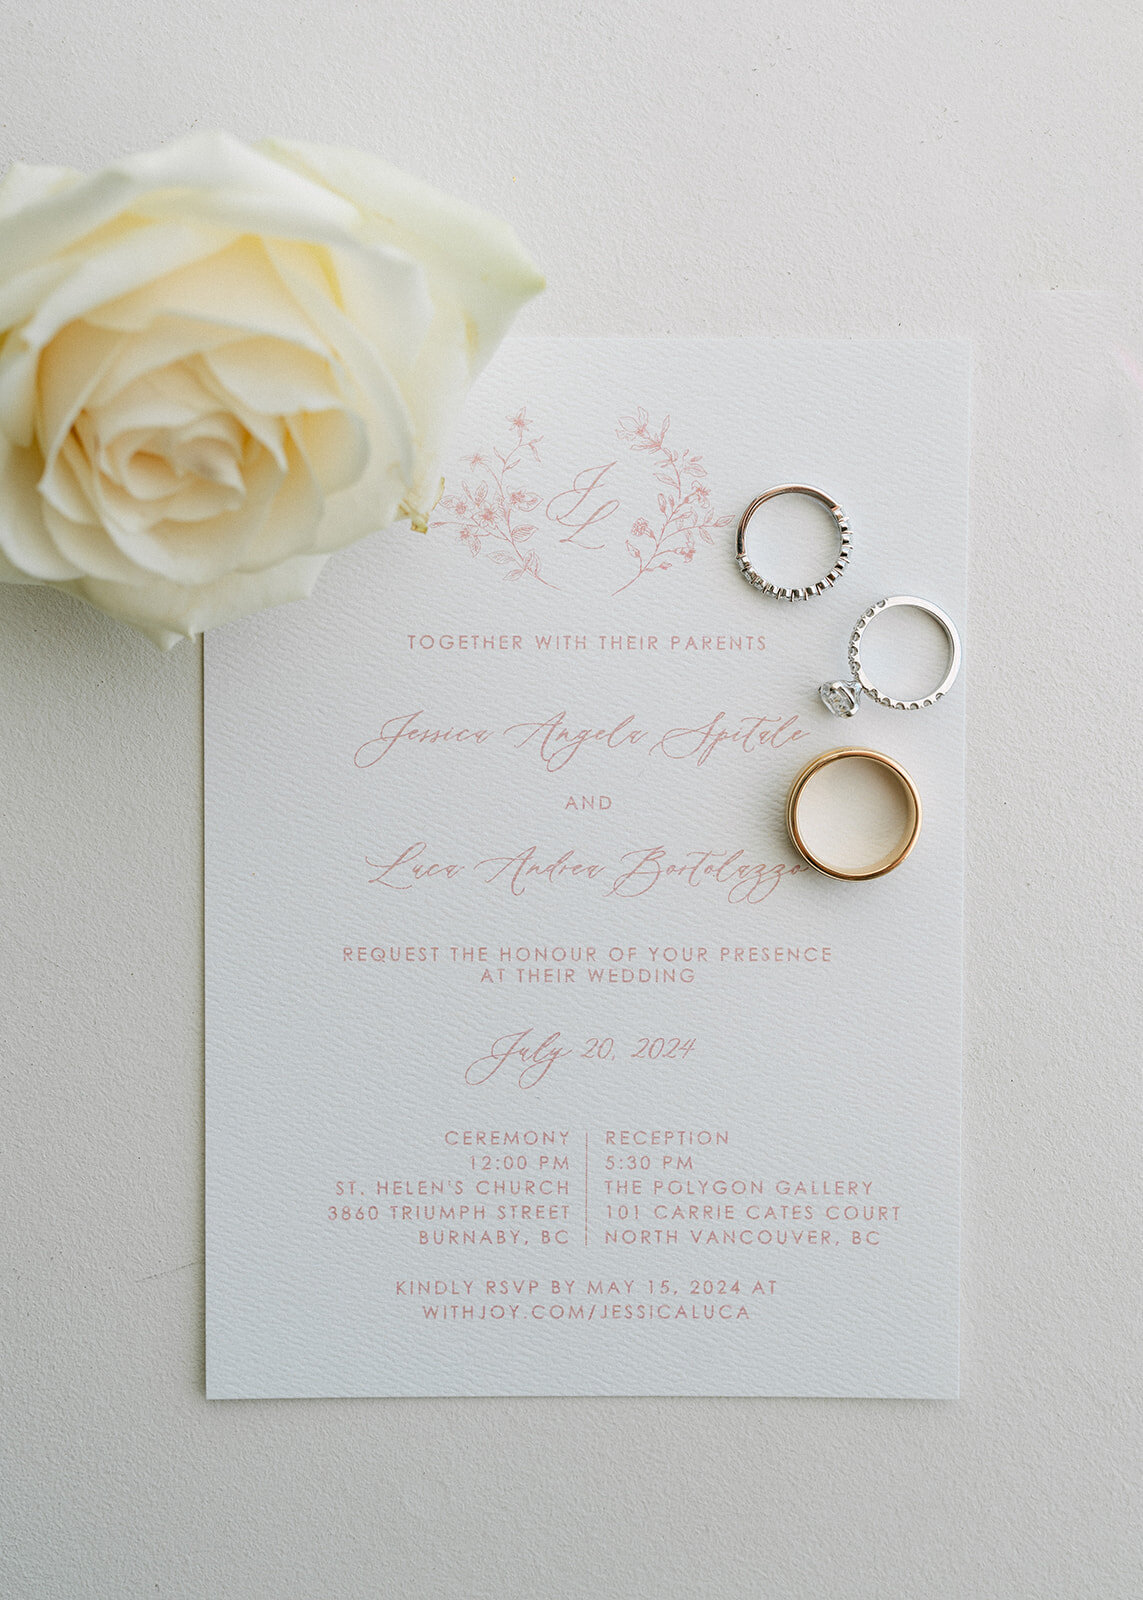 JL
TOGETHER WITH THEIR PARENTS
Jessica Angela Spitale
AND
Luca Andrea Bortolazzo
REQUEST THE HONOUR OF YOUR PRESENCE
AT THEIR WEDDING
July 20, 2024
CEREMONY
12:00 PM
ST. HELEN'S CHURCH
3860 TRIUMPH STREET
BURNABY, BC
RECEPTION
5:30 PM
THE POLYGON GALLERY
101 CARRIE CATES COURT
NORTH VANCOUVER, BC
KINDLY RSVP BY MAY 15, 2024 AT
WITHJOY.COM/JESSICALUCA